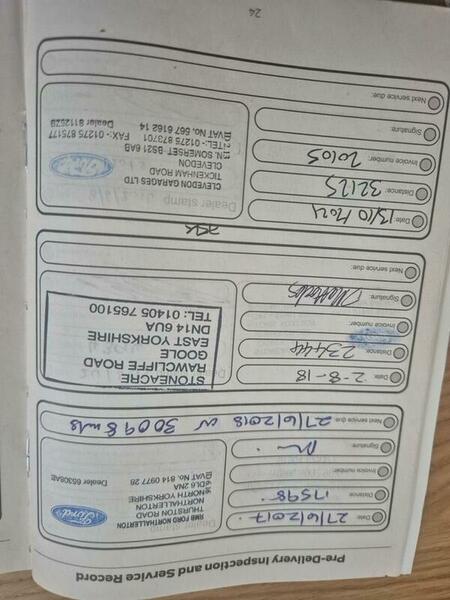 Pre-Delivery Inspection and Service Record
Date: 27/6/2017
Distance: 17598
Invoice number:
Signature:
Next service due: 27/6/2018 or 30098 mls
Dealer stamp
Ford
RMB FORD NORTHALLERTON
THURSTON ROAD
NORTHALLERTON
NORTH YORKSHIRE
DL6 2NA
VAT No. 814 0977 28
Dealer 65308AE
Date: 2-8-18
Distance: 23444
Invoice number:
Signature:
Next service due:
STONEACRE
RAWCLIFFE ROAD
GOOLE
EAST YORKSHIRE
DN14 6UA
TEL: 01405 765100
Date: 13/10/2021
Distance: 32125
Invoice number: 20105
Signature:
Next service due:
Dealer stamp
Ford
CLEVEDON GARAGES LTD
TICKENHAM ROAD
CLEVEDON
N. SOMERSET BS21 6AB
TEL:- 01275 873701 FAX - 01275 875177
VAT No. 567 6162 14
Dealer 81125ZB
24